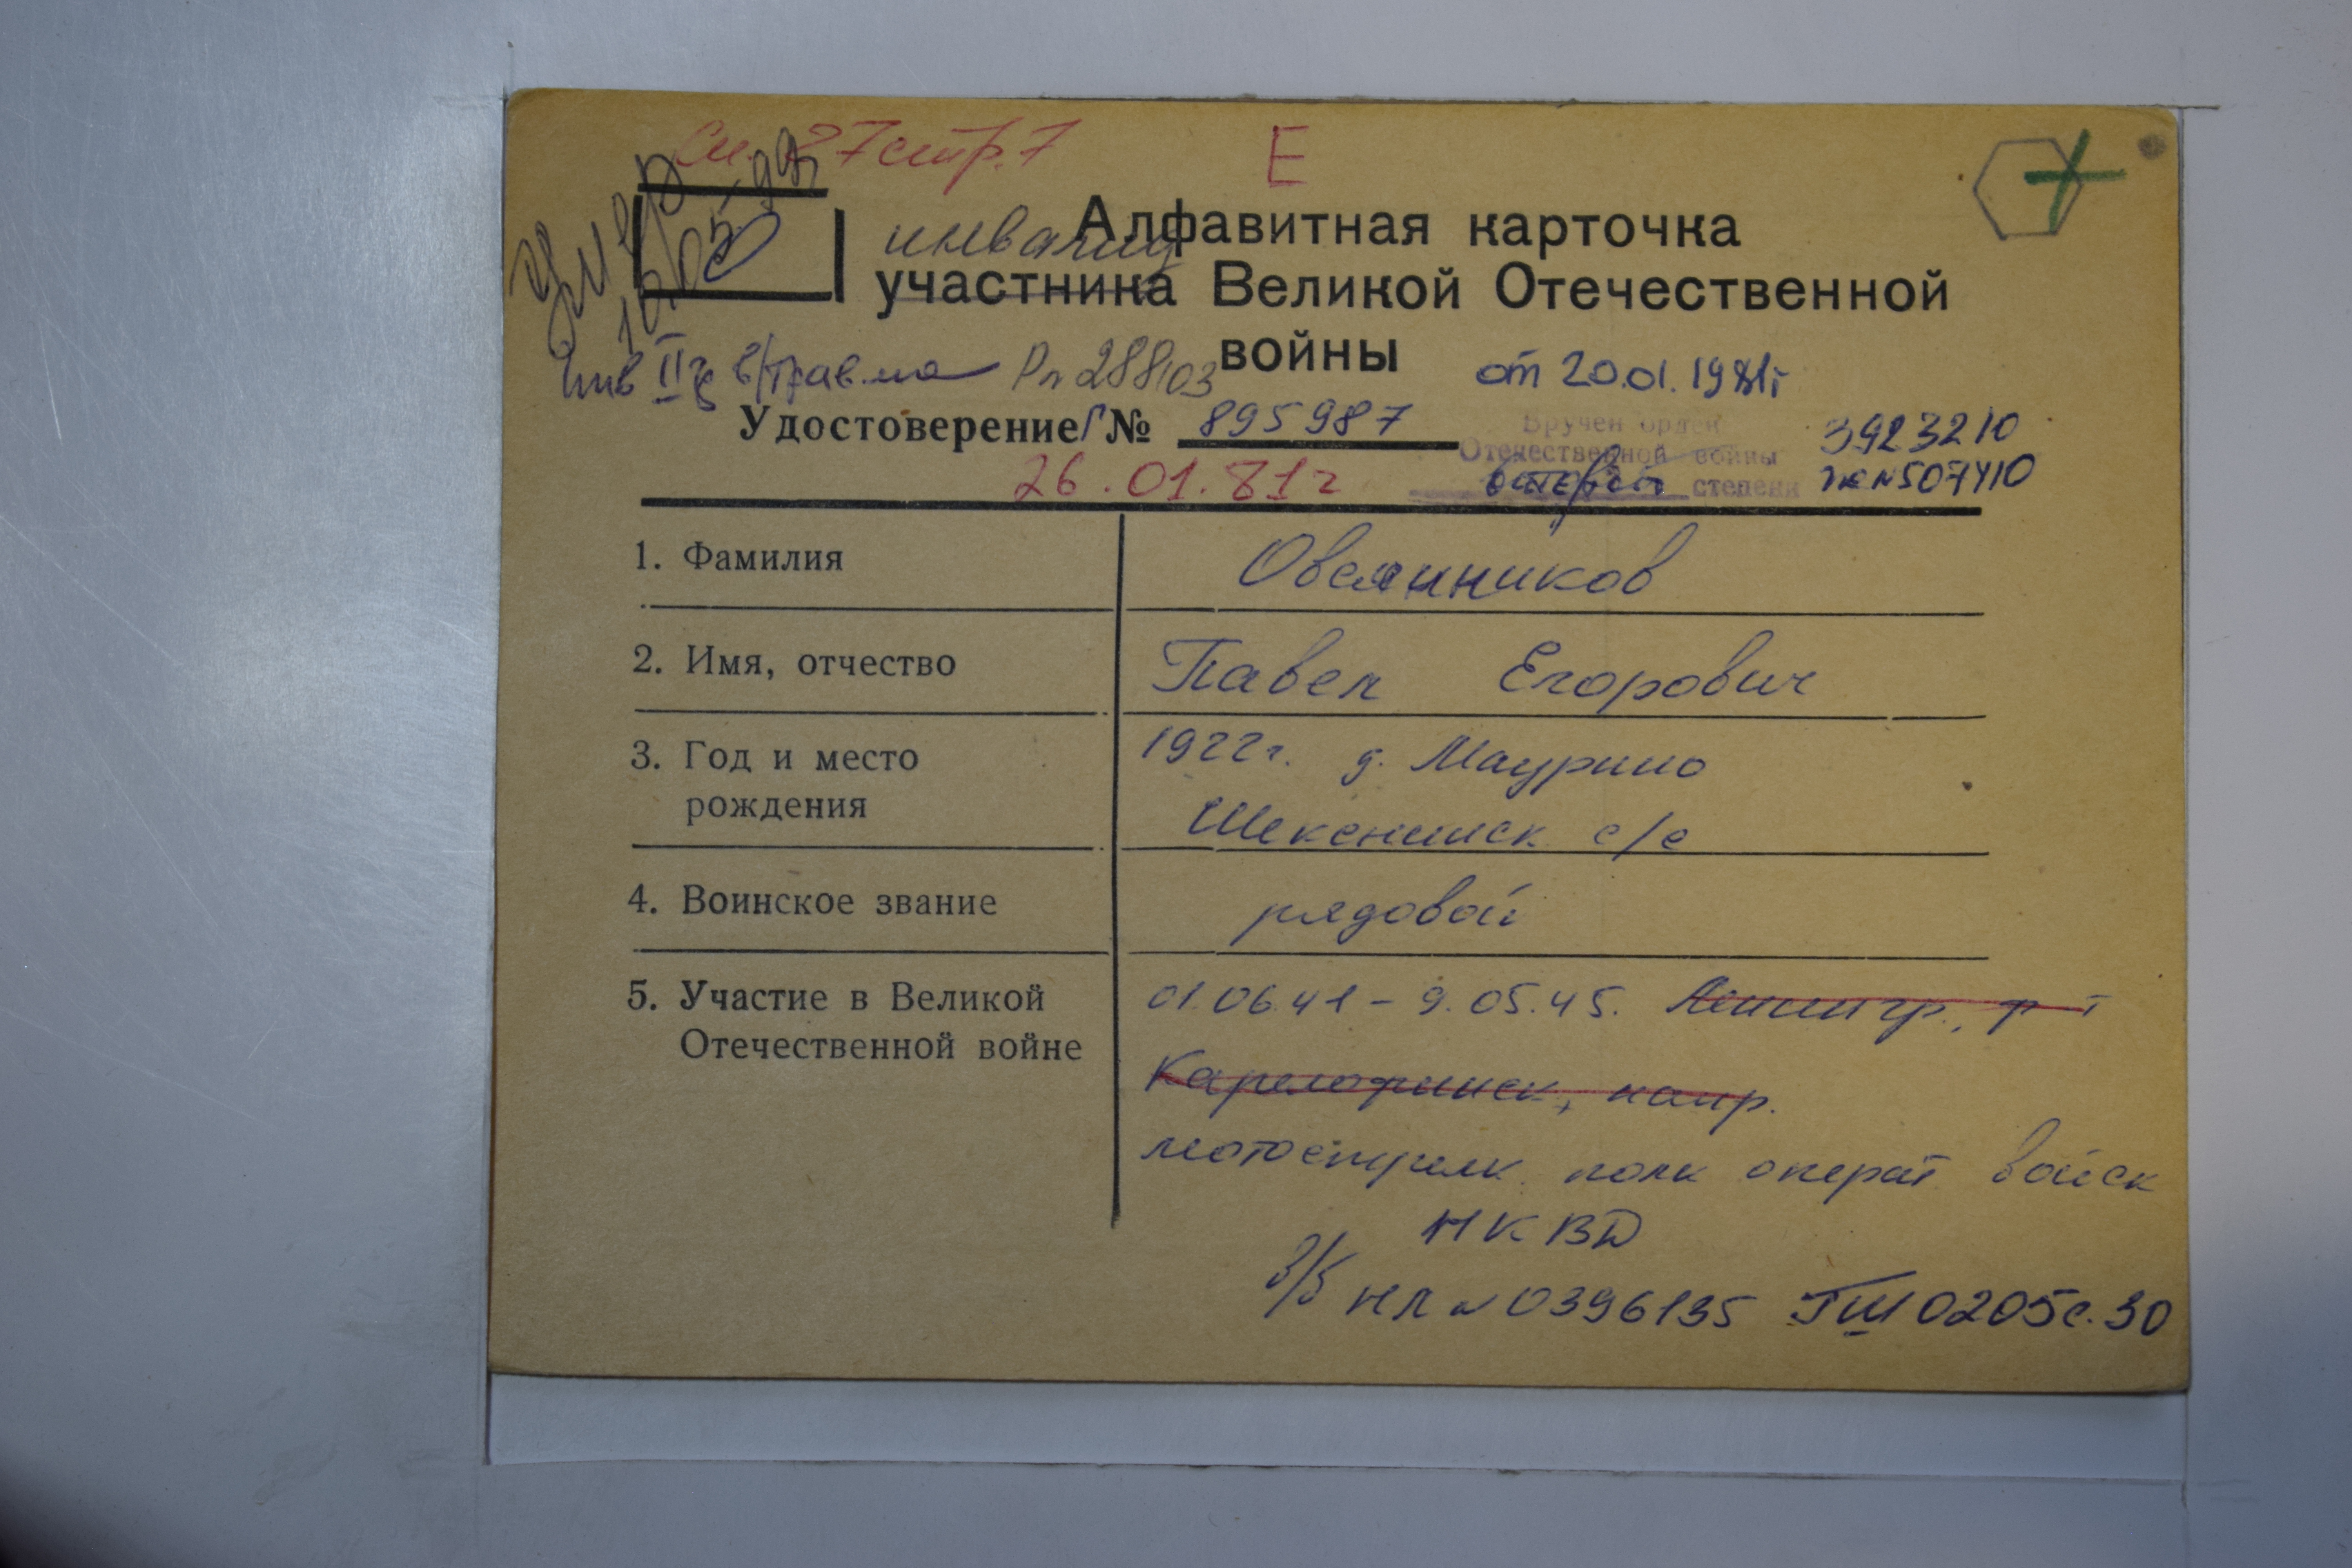 См. 27 стр. 7 Е
умер 10/05-99
инвалид
Алфавитная карточка
участника Великой Отечественной
войны
Инв IIг в/травма Рп 288103 от 20.01.1981г
Удостоверение Г № 895987
26.01.81г
Вручен орден
Отечественной войны
степени
3923210
№507410
1. Фамилия Овсянников
2. Имя, отчество Павел Егорович
3. Год и место
рождения
1922г. д. Маурино
Шекснинск с/с
4. Воинское звание рядовой
5. Участие в Великой
Отечественной войне
01.06.41 - 9.05.45. Ленингр., ф-т
Карелофинск, напр.
мотострелк. полк операт войск
НКВД
в/б НЛ № 0396135 ГШ 0205 с. 30